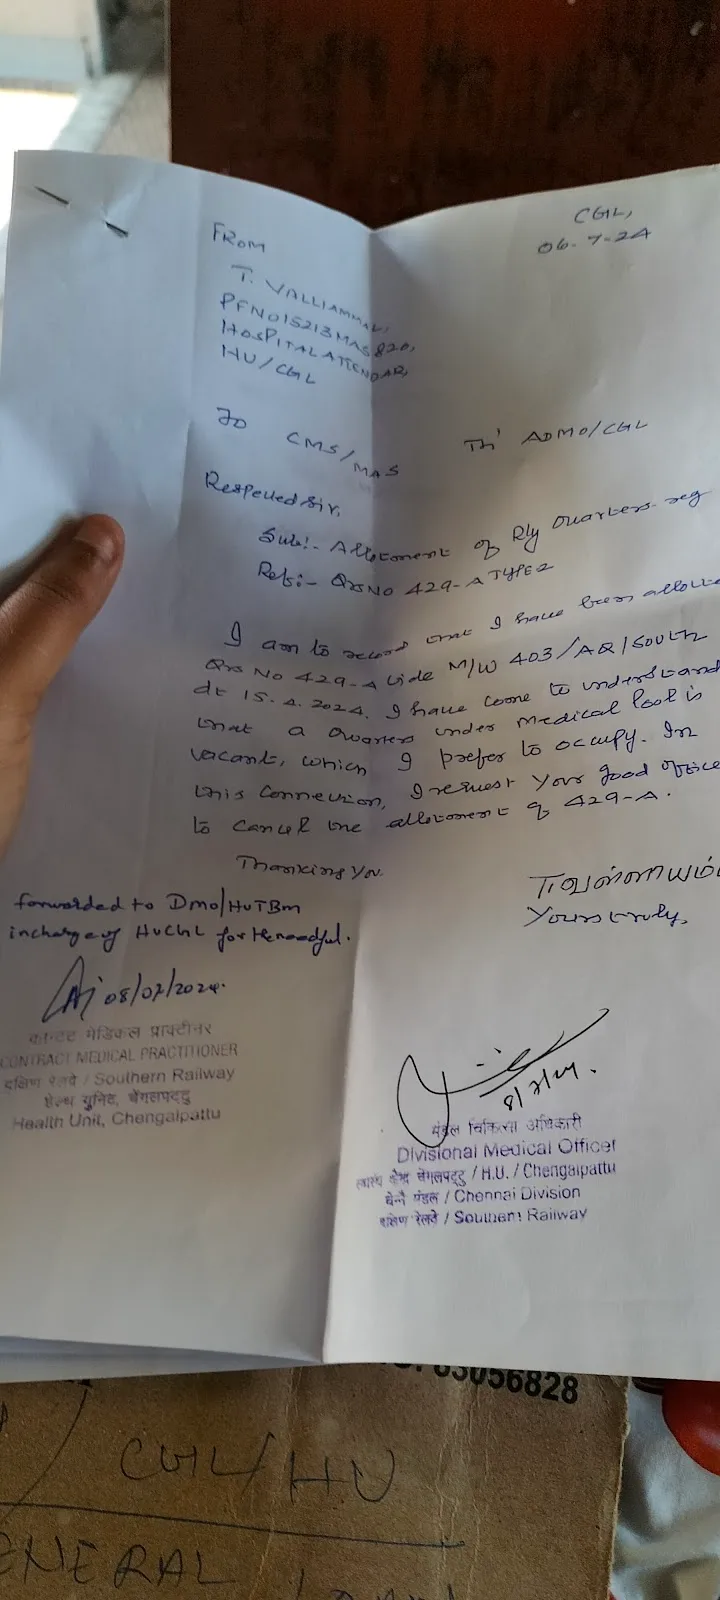 CGL,
06-7-24
FROM
T. VALLIAMMAL,
PFNO15213MAS820,
HOSPITAL ATTENDAR,
HU/CGL
To
CMS/MAS Th' ADMO/CGL
Respected Sir,
Sub:- Allotment of Rly Quarters-reg
Ref:- Qrs No 429-A TYPE 2
I am to record that I have been allotted
Qrs No 429-A vide M/W 403/AQ/South
dt 15.4.2024. I have come to understand
that a Quarters under medical Pool is
vacant, which I prefer to occupy. In
this connection, I request your good office
to cancel the allotment of 429-A.
Thanking You.
Yours truly,
forwarded to Dmo/HUTBM
incharge of HUCGL for the needful.
08/07/2024.
कान्टट मेडिकल प्राक्टीनर
CONTRACT MEDICAL PRACTITIONER
दक्षिण रेलवे / Southern Railway
हेल्थ युनिट, चेंगलपट्टु
Health Unit, Chengalpattu
मंडल चिकित्सा अधिकारी
Divisional Medical Officer
केन्द्र चेंगलपट्टु / H.U. / Chengalpattu
चेन्नै मंडल / Chennai Division
दक्षिण रेलवे / Southern Railway
03056828
CGL/HU